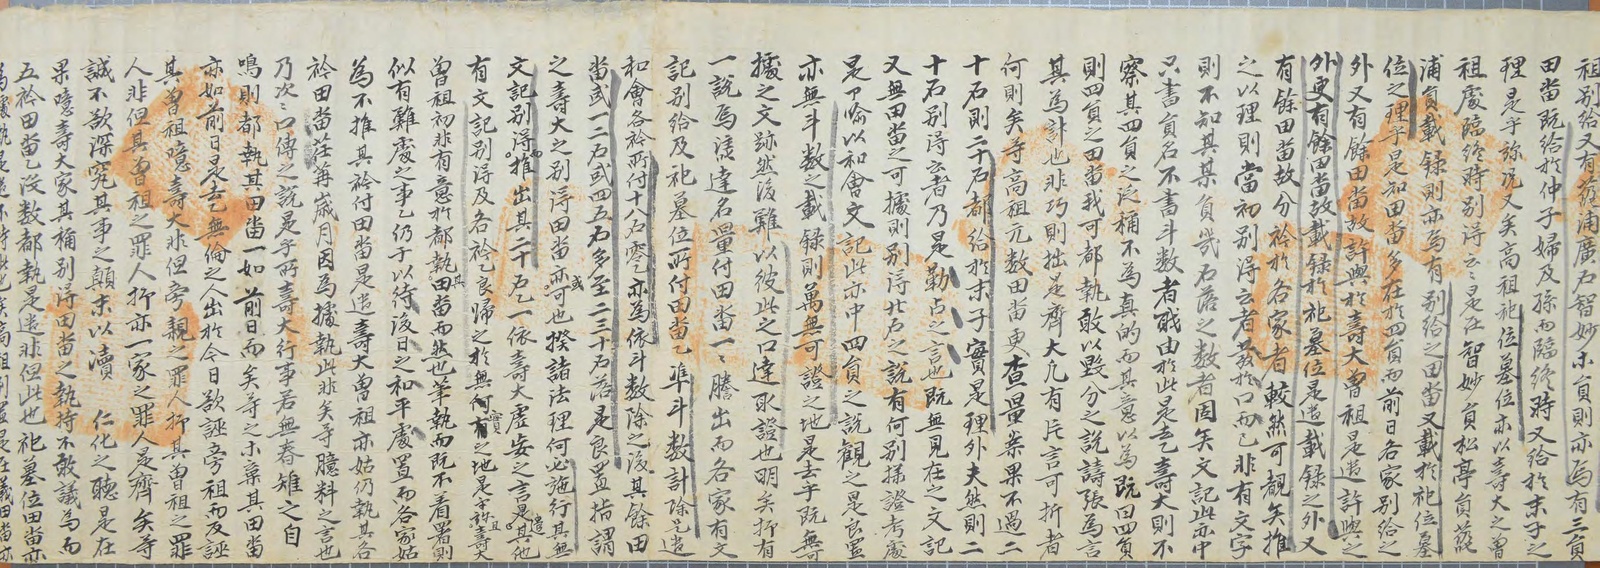 祖別給又有蓯浦廣石智妙未員則亦為有三員
田畓既給於仲子婦及孫而臨終時又給於末子之
理是乎旀況又矣高祖祀位墓位亦以壽大之曾
祖處臨終時別得云云是在智妙員松亭員蓯
浦員載錄則亦為有別給之田畓又載於祀位墓
位之理乎是如田畓多在於四員而前日各家別給之
外又有餘田畓故許與於壽大曾祖是遣許與之
外更有餘田畓故載錄於祀墓位是遣載錄之外又
有餘田畓故分衿於各家者較然可覩矣推
之以理則當初別得云者發於口而已非有文字
則不知其某員幾石落之數者因矣文記此亦中
只書員名不書斗數者戝由於此是去乙壽大則不
察其四員之泛稱不為真的而其意以為既曰四員
則四員之田畓我可都執敢以毀分之說譸張為言
其為計也非巧則拙是齊大凡有片言可折者
何則矣等高祖元數田畓更查量案果不過二
十石則二十石都給於末子實是理外夫然則二
十石別得云者乃是勒占之言也既無見在之文記
又無田畓之可據則別得廿石之說有何別㨾證考處
是乎喩以和會文記此亦中四員之說觀之是良置
亦無斗數之載錄則萬無可證之地是去乎既無可
據之文跡然後雖以彼此之口達取證也明矣抑有
一說焉淺達名畓量付田畓一一謄出而各家有文
記別給及祀墓位所付田畓乙準斗數計除是遣
和會各衿所付十八石零乙亦為依斗數除之後其餘田
畓或一二石或四五石多至二三十石落是良置指謂
之壽大之別得田畓亦或可也揆諸法理何必施行其無
文記別得推出其二十石乙依壽大虛妄之言是遣其他
有文記別得及各衿乙良歸之於無何有之地是乎旀壽大
曾祖初非有意於都執其田畓而然也筆執而既不着署則
似有難處之事乙仍于以待後日之和平處置而各家姑
為不推其衿付田畓是遣壽大曾祖亦姑仍執其各
衿田畓荏苒歲月因為據執此非矣等臆料之言也
乃次次口傳之說是乎所壽大行事若無春雉之自
鳴則都執其田畓一如前日而矣等之不棄其田畓
亦如前日是去乙無倫之人出於今日欲誣旁祖而反誣
其曾祖噫壽大非但旁親之罪人抑其曾祖之罪
人非但其曾祖之罪人抑亦一家之罪人是齊矣等
誠不欲深究其事之顛末以瀆 仁化之聽是在
果噫壽大家其稱別得田畓之執持不敢議為而
五衿田畓乙沒數都執是遣非但此也祀墓位田畓亦